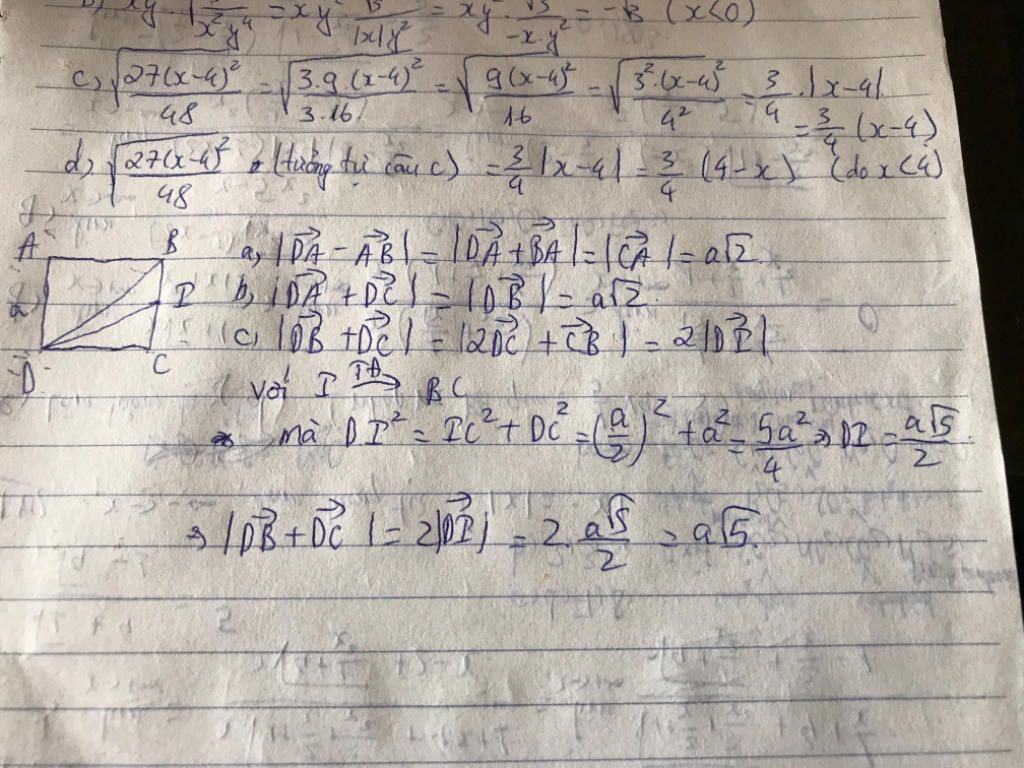 b) xy² √(3/(x²y⁴)) = xy² · √3/(|x|y²) = xy² · √3/(-x·y²) = -√3 (x<0)
c) √(27(x-4)²/48) = √(3.9.(x-4)²/(3.16)) = √(9(x-4)²/16) = √(3².(x-4)²/4²) = 3/4 · |x-4|
= 3/4 (x-4)
d) √(27(x-4)²/48) (tưởng tự câu c) = 3/4 |x-4| = 3/4 (4-x) (do x<4)
A B a) |DA→ - AB→| = |DA→ + BA→| = |CA→| = a√2.
a I b) |DA→ + DC→| = |DB→| = a√2.
D C c) |DB→ + DC→| = |2DC→ + CB→| = 2|DI→|
với I TĐ→ BC
mà DI² = IC² + DC² = (a/2)² + a² = 5a²/4 ⇒ DI = a√5/2.
⇒ |DB→ + DC→| = 2|DI→| = 2.a√5/2 = a√5.